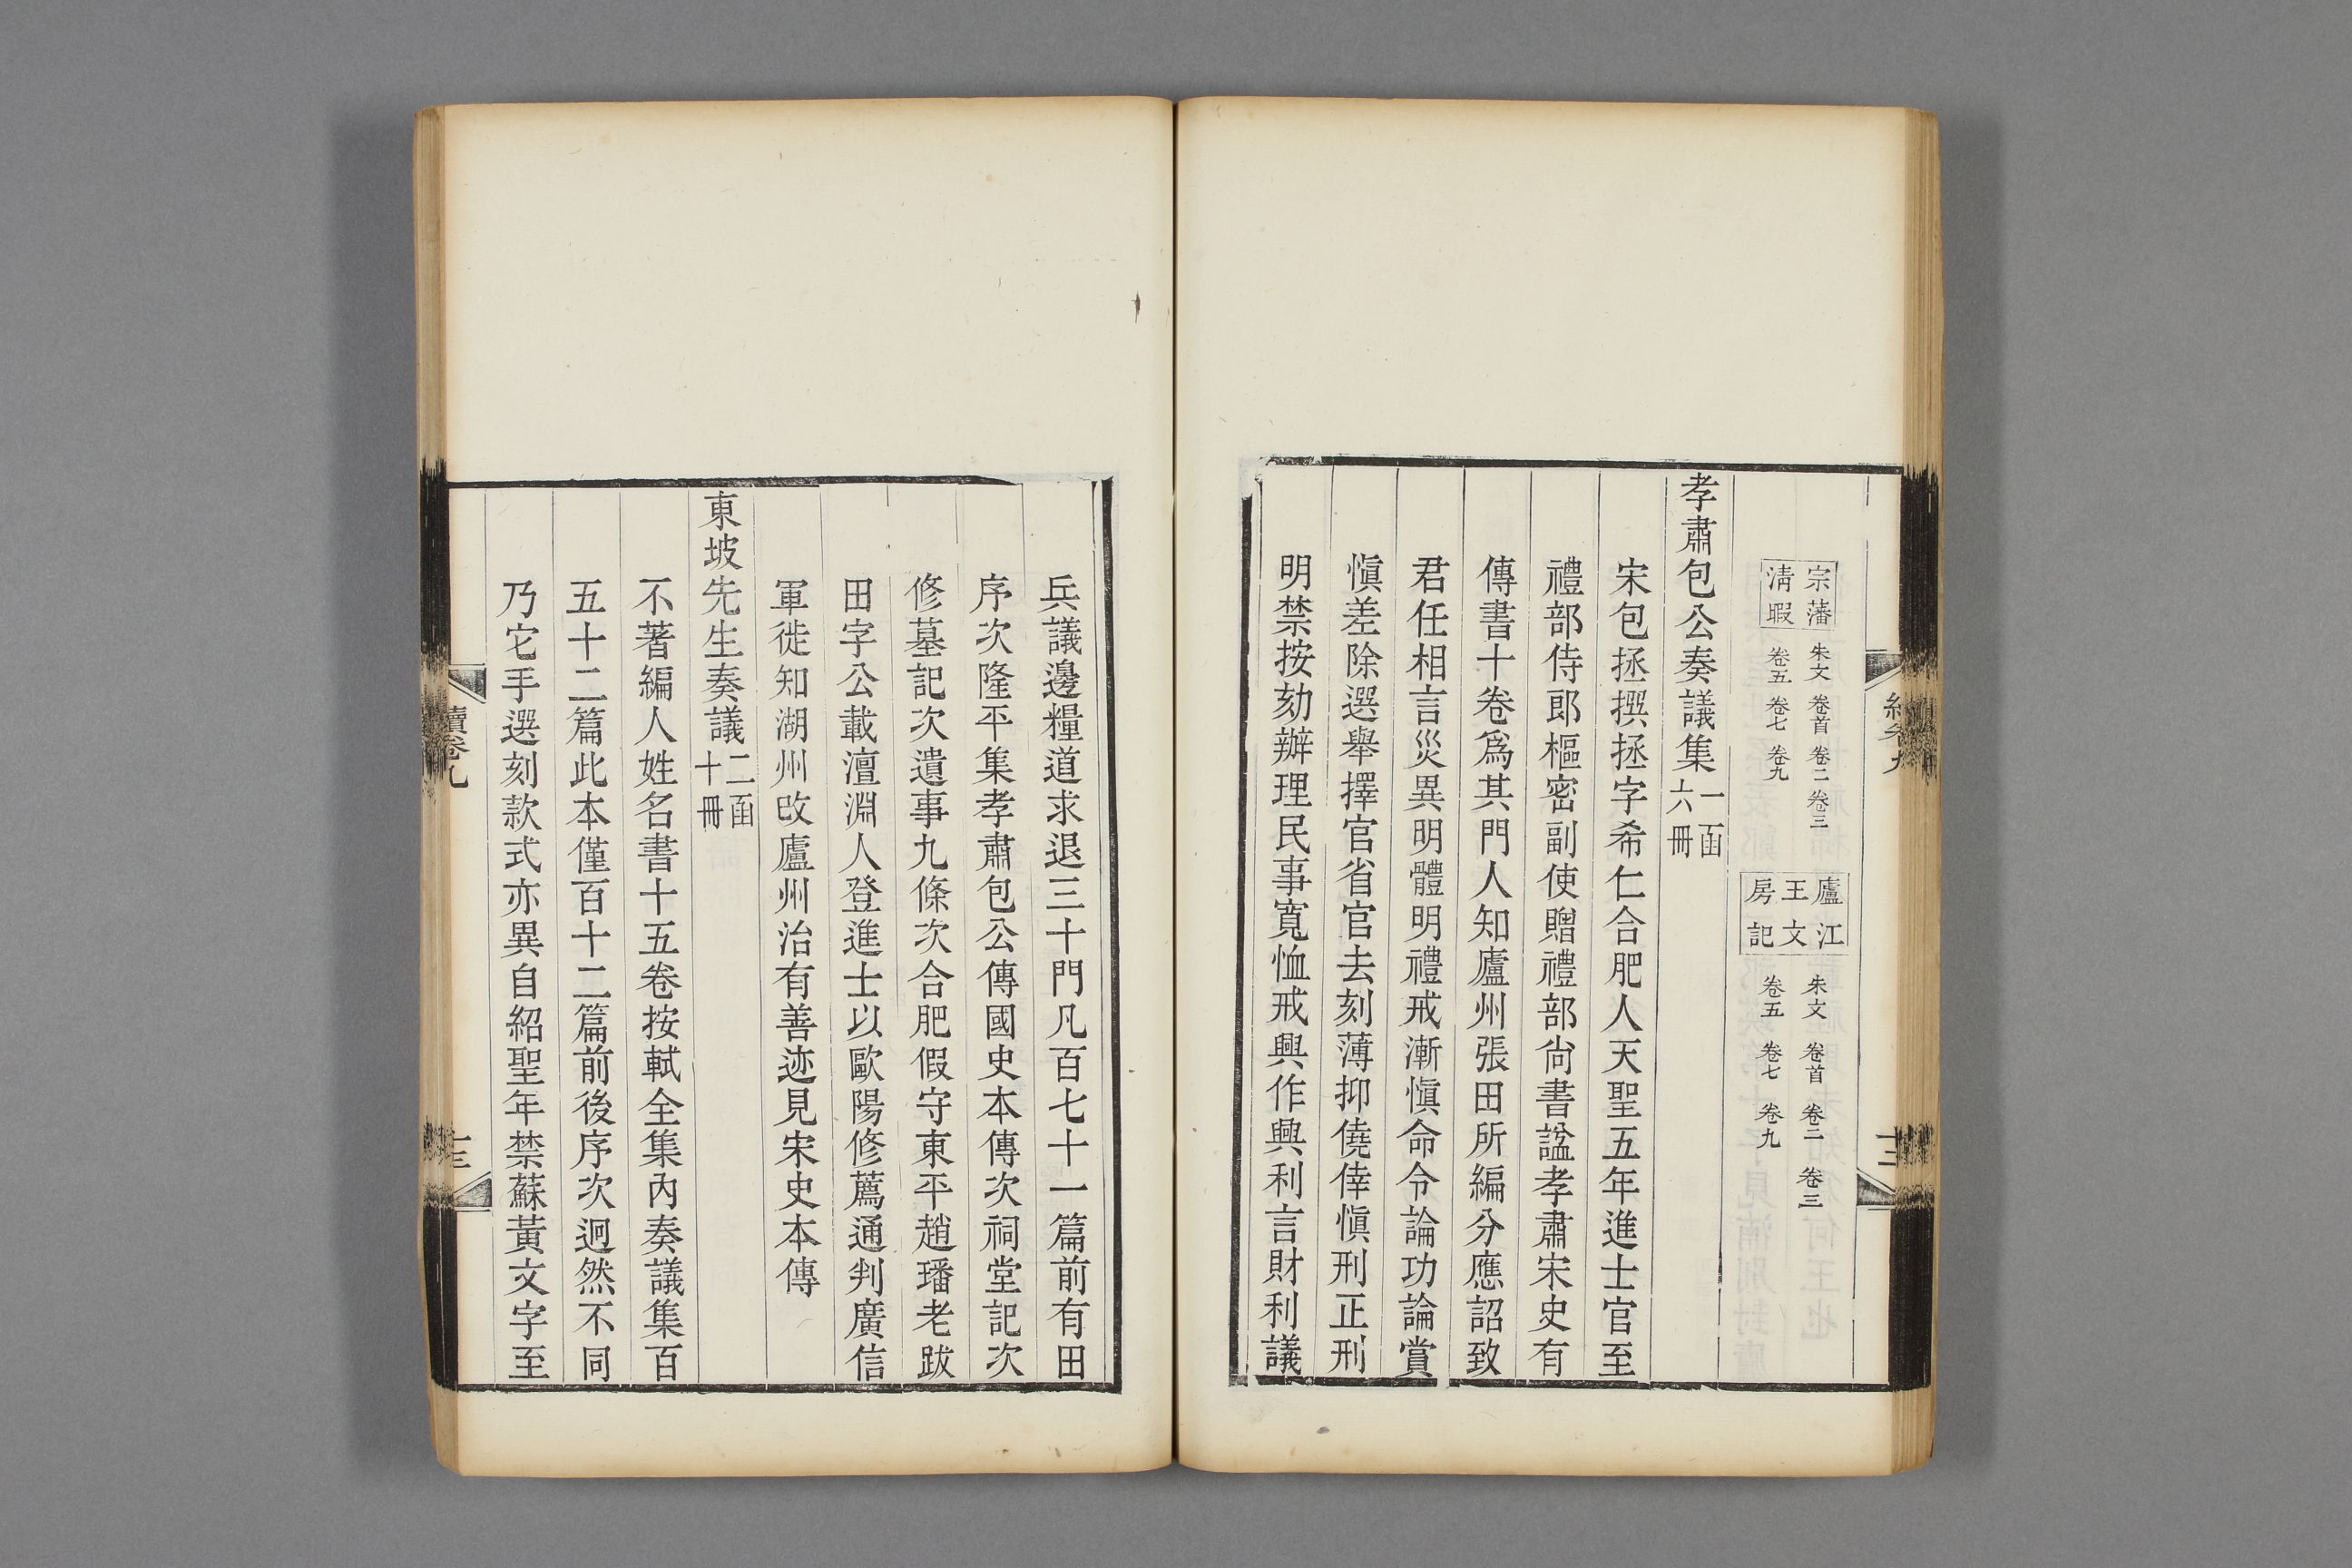 宗藩清暇
朱文 卷首 卷二 卷三
卷五 卷七 卷九
廬江王文房記
朱文 卷首 卷二 卷三
卷五 卷七 卷九
孝肅包公奏議集一函六冊
宋包拯撰拯字希仁合肥人天聖五年進士官至
禮部侍郎樞密副使贈禮部尚書諡孝肅宋史有
傳書十卷爲其門人知廬州張田所編分應詔致
君任相言災異明體明禮戒漸愼命令論功論賞
愼差除選舉擇官省官去刻薄抑僥倖愼刑正刑
明禁按劾辦理民事寬恤戒興作興利言財利議
兵議邊糧道求退三十門凡百七十一篇前有田
序次隆平集孝肅包公傳國史本傳次祠堂記次
修墓記次遺事九條次合肥假守東平趙璠老跋
田字公載澶淵人登進士以歐陽修薦通判廣信
軍徙知湖州改廬州治有善迹見宋史本傳
東坡先生奏議二函十冊
不著編人姓名書十五卷按軾全集內奏議集百
五十二篇此本僅百十二篇前後序次迥然不同
乃它手選刻款式亦異自紹聖年禁蘇黃文字至
續卷九
十三